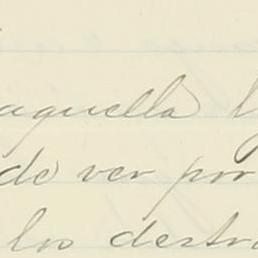 aquella
de ver por
los destro